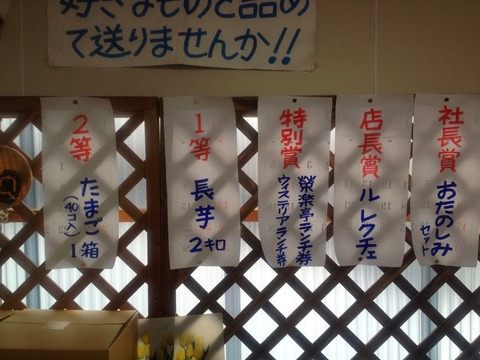 好きなものを詰め
て送りませんか!!
社長賞
おたのしみ
セット
店長賞
ル レクチェ
特別賞
榮楽亭ランチ券
ウィステリアランチ券
1等
長芋
2キロ
2等
たまご
(40コ入)
1箱